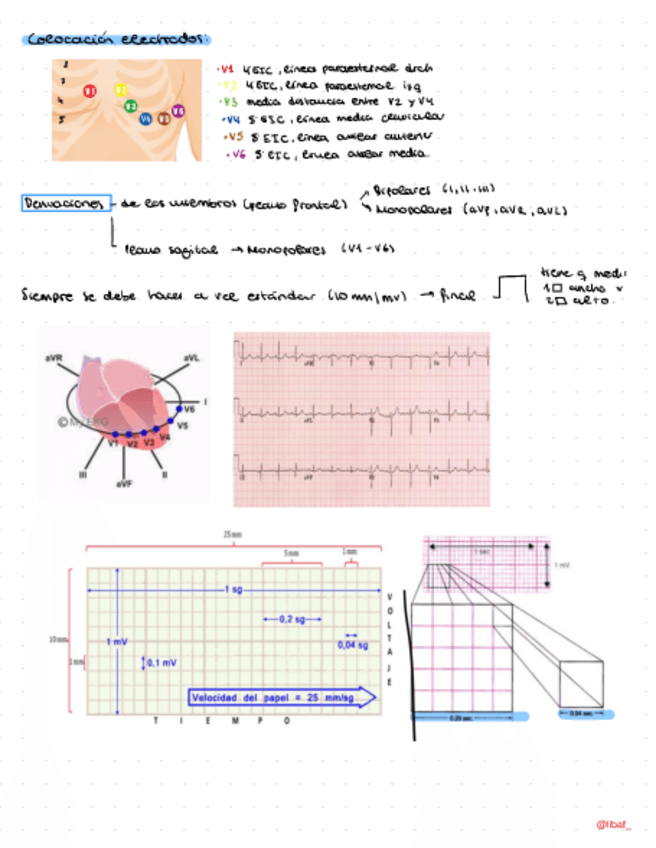 Colocación electrodos:
2
3
4
5
V1
V2
V3
V4
V5
V6
· V1 4EIC, línea paraesternal drch
· V2 4EIC, línea paraesternal izq
· V3 media distancia entre V2 y V4
· V4 5ºEIC, línea media clavicular
· V5 5ºEIC, línea axilar anterior
· V6 5ºEIC, línea axilar media.
Derivaciones - de los miembros (plano frontal)
Bipolares (I, II, III)
Monopolares (aVF, aVR, aVL)
Plano sagital → Monopolares (V1-V6)
Siempre se debe hacer a vel estándar (10mm/mV) →
tiene q medir
1□ ancho x
2□ alto.
aVR
aVL
I
V6
V5
V4
V3
V2
V1
III
aVF
II
© My EKG
25mm
5mm
1mm
1 sg
10mm
1 mV
0,2 sg
0,04 sg
1mm
0,1 mV
VOLTAJE
Velocidad del papel = 25 mm/sg
T I E M P O
1 sec
1 mV
0.20 sec.
0.04 sec.